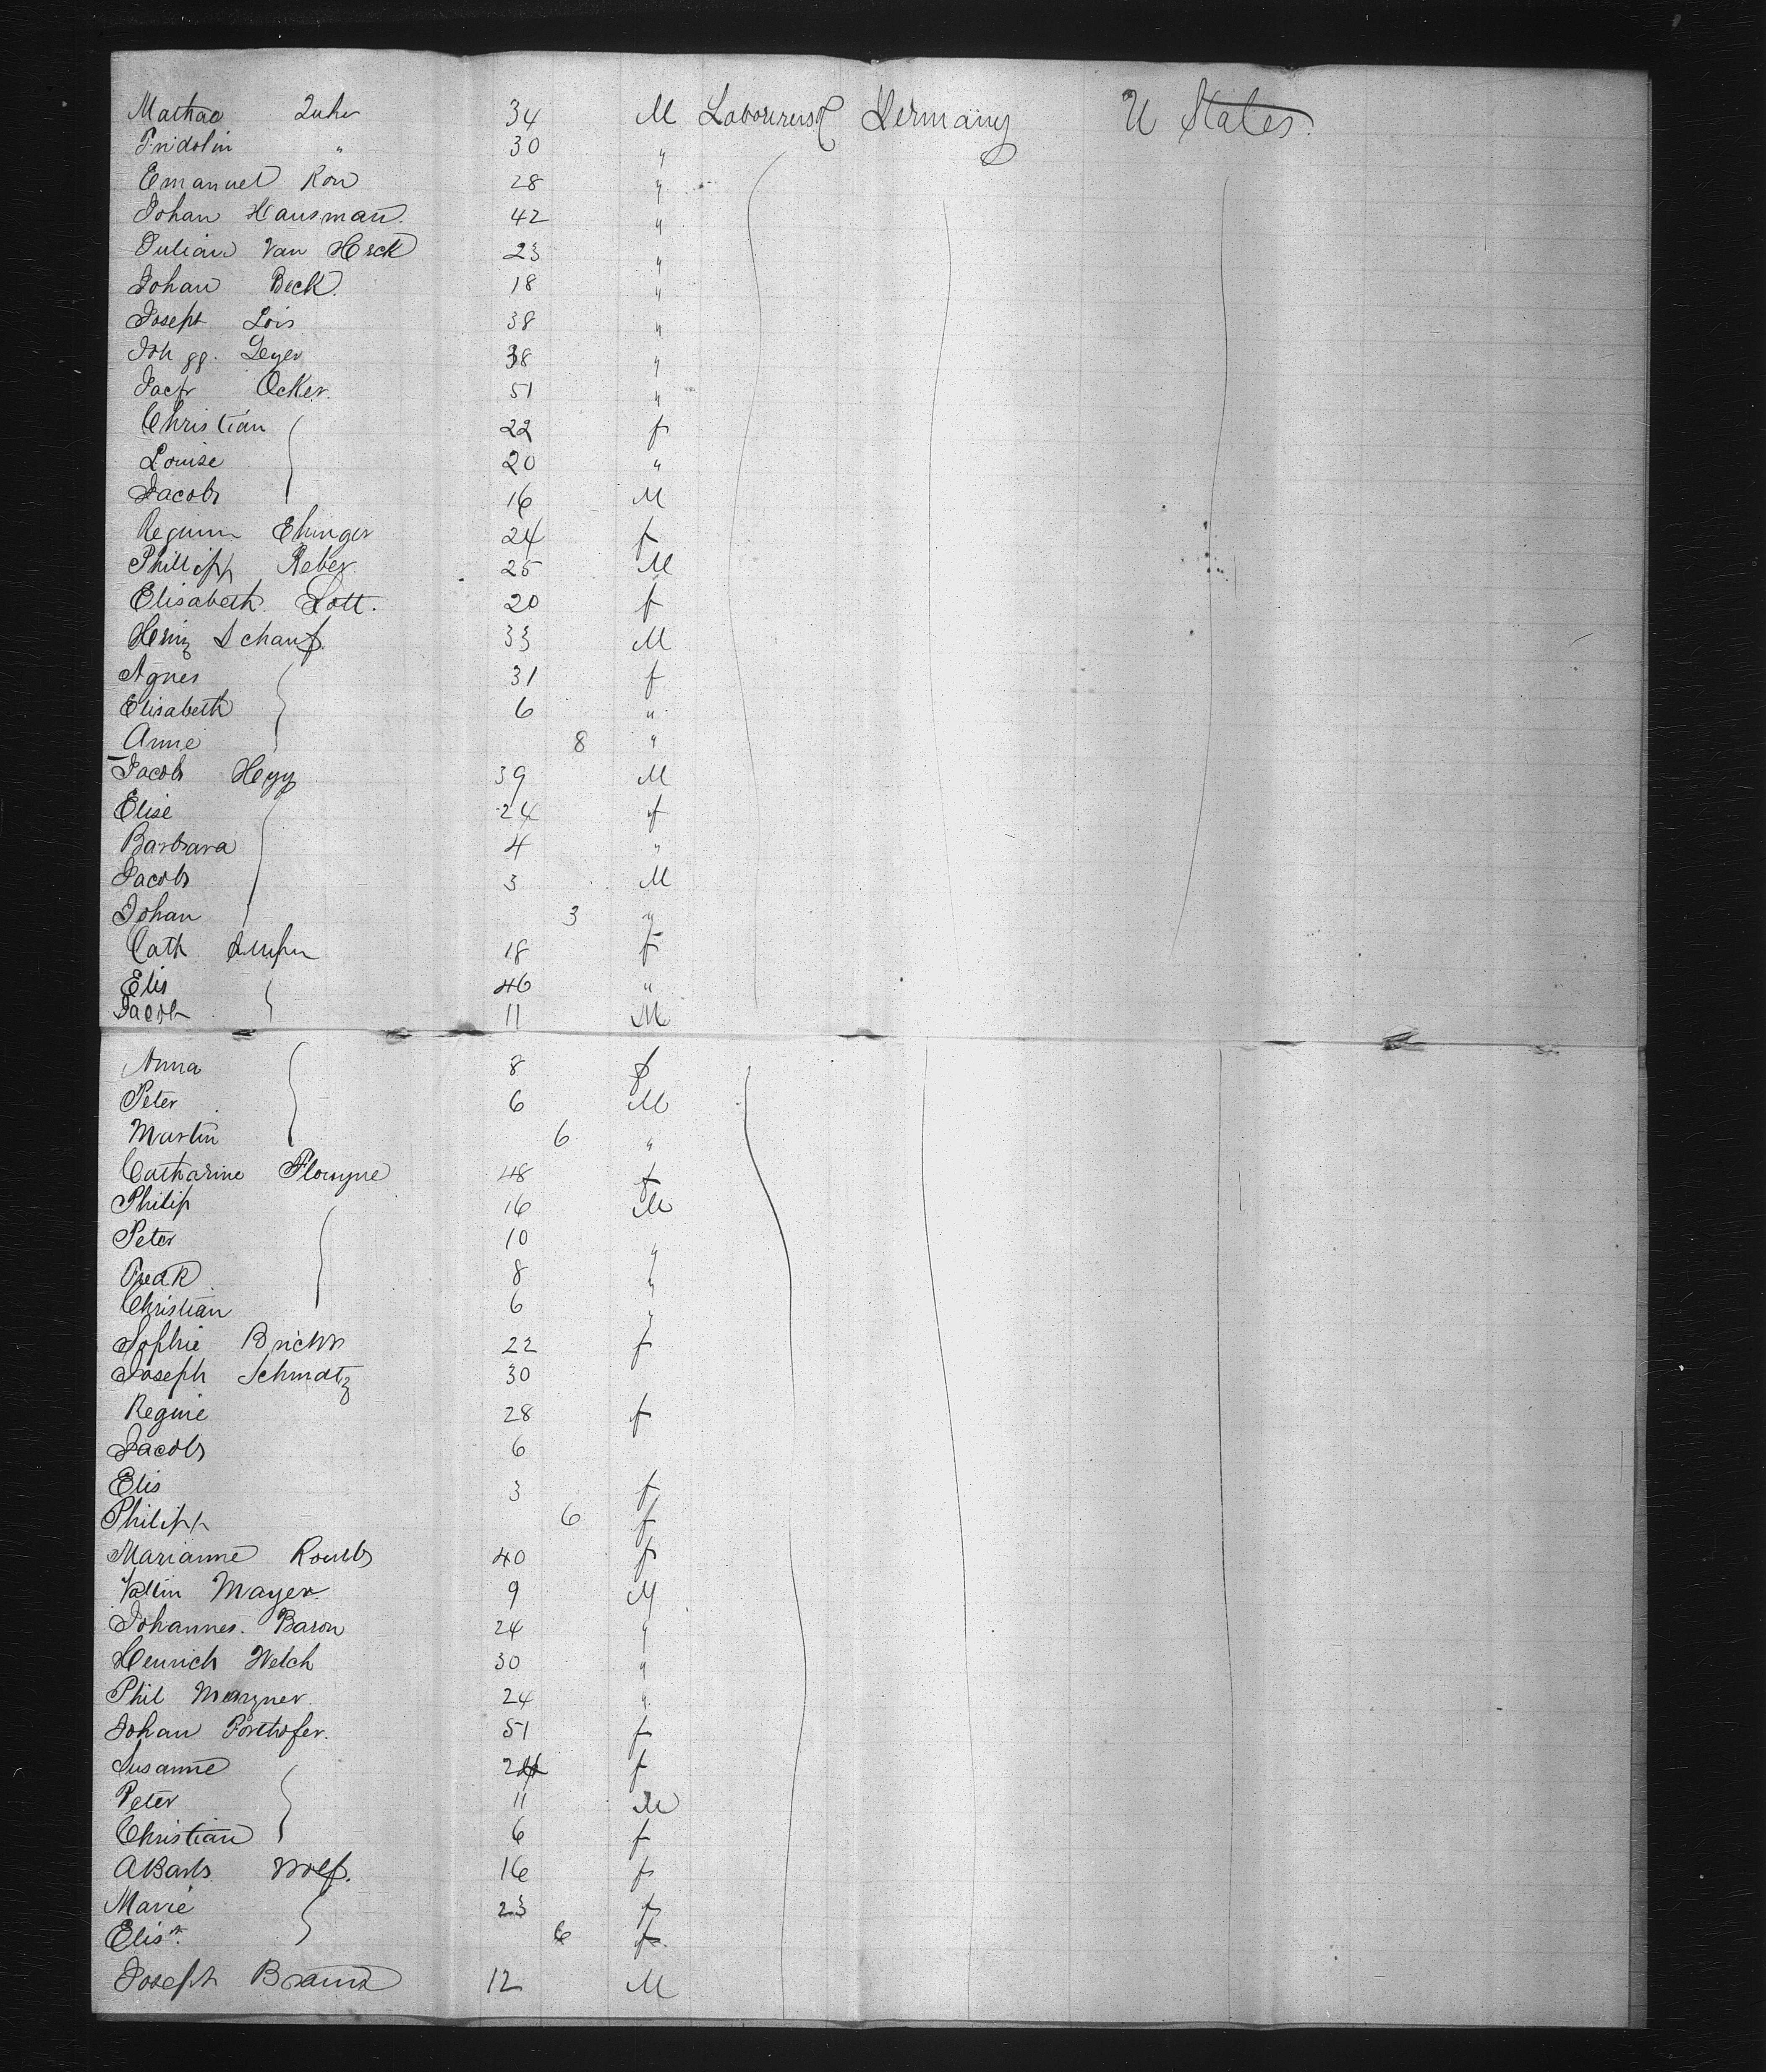 Mathao Luhr 34 M Labourers Germany U States.
Fridolin " 30 "
Emanuel Rou 28 "
Johan Hausman. 42 "
Julian Van Heck 23 "
Johan Beck. 18 "
Joseph Lois 38 "
Joh gg. Leyer 38 "
Jacb Ocker. 51 "
Christian 22 f
Louise 20 "
Jacob 16 M
Ehinger 24 f
Phillipp Reber. 25 M
Elisabeth Lott. 20 f
Heinr Schauf. 33 M
Agnes 31 f
Elisabeth 6 "
Anne 8 "
Jacob Hegy 39 M
Elise 24 f
Barbara 4 "
Jacob 3 M
Johan 3 "
Cath 18 f
Elis 46 "
Jacob 11 M
Anna 8 f
Peter 6 M
Martin 6 "
Catharine 48 f
Philip 16 M
Peter 10 "
Fredk 8 "
Christian 6 "
Sophie 22 f
Joseph Schmaltz 30
Regine 28 f
Jacob 6
Elis 3 f
Philipp 6 f
Marianne 40 f
Valtin Mayer. 9 M
Johannes. Baron 24 "
Heinrich Welch 30 "
Phil 24 "
Johan Porthofer. 51 f
Susanne 24 f
Peter 11 M
Christian 6 f
Wolf. 16 f
Marie 23 f
Elis. 6 f
Joseph Braun 12 M